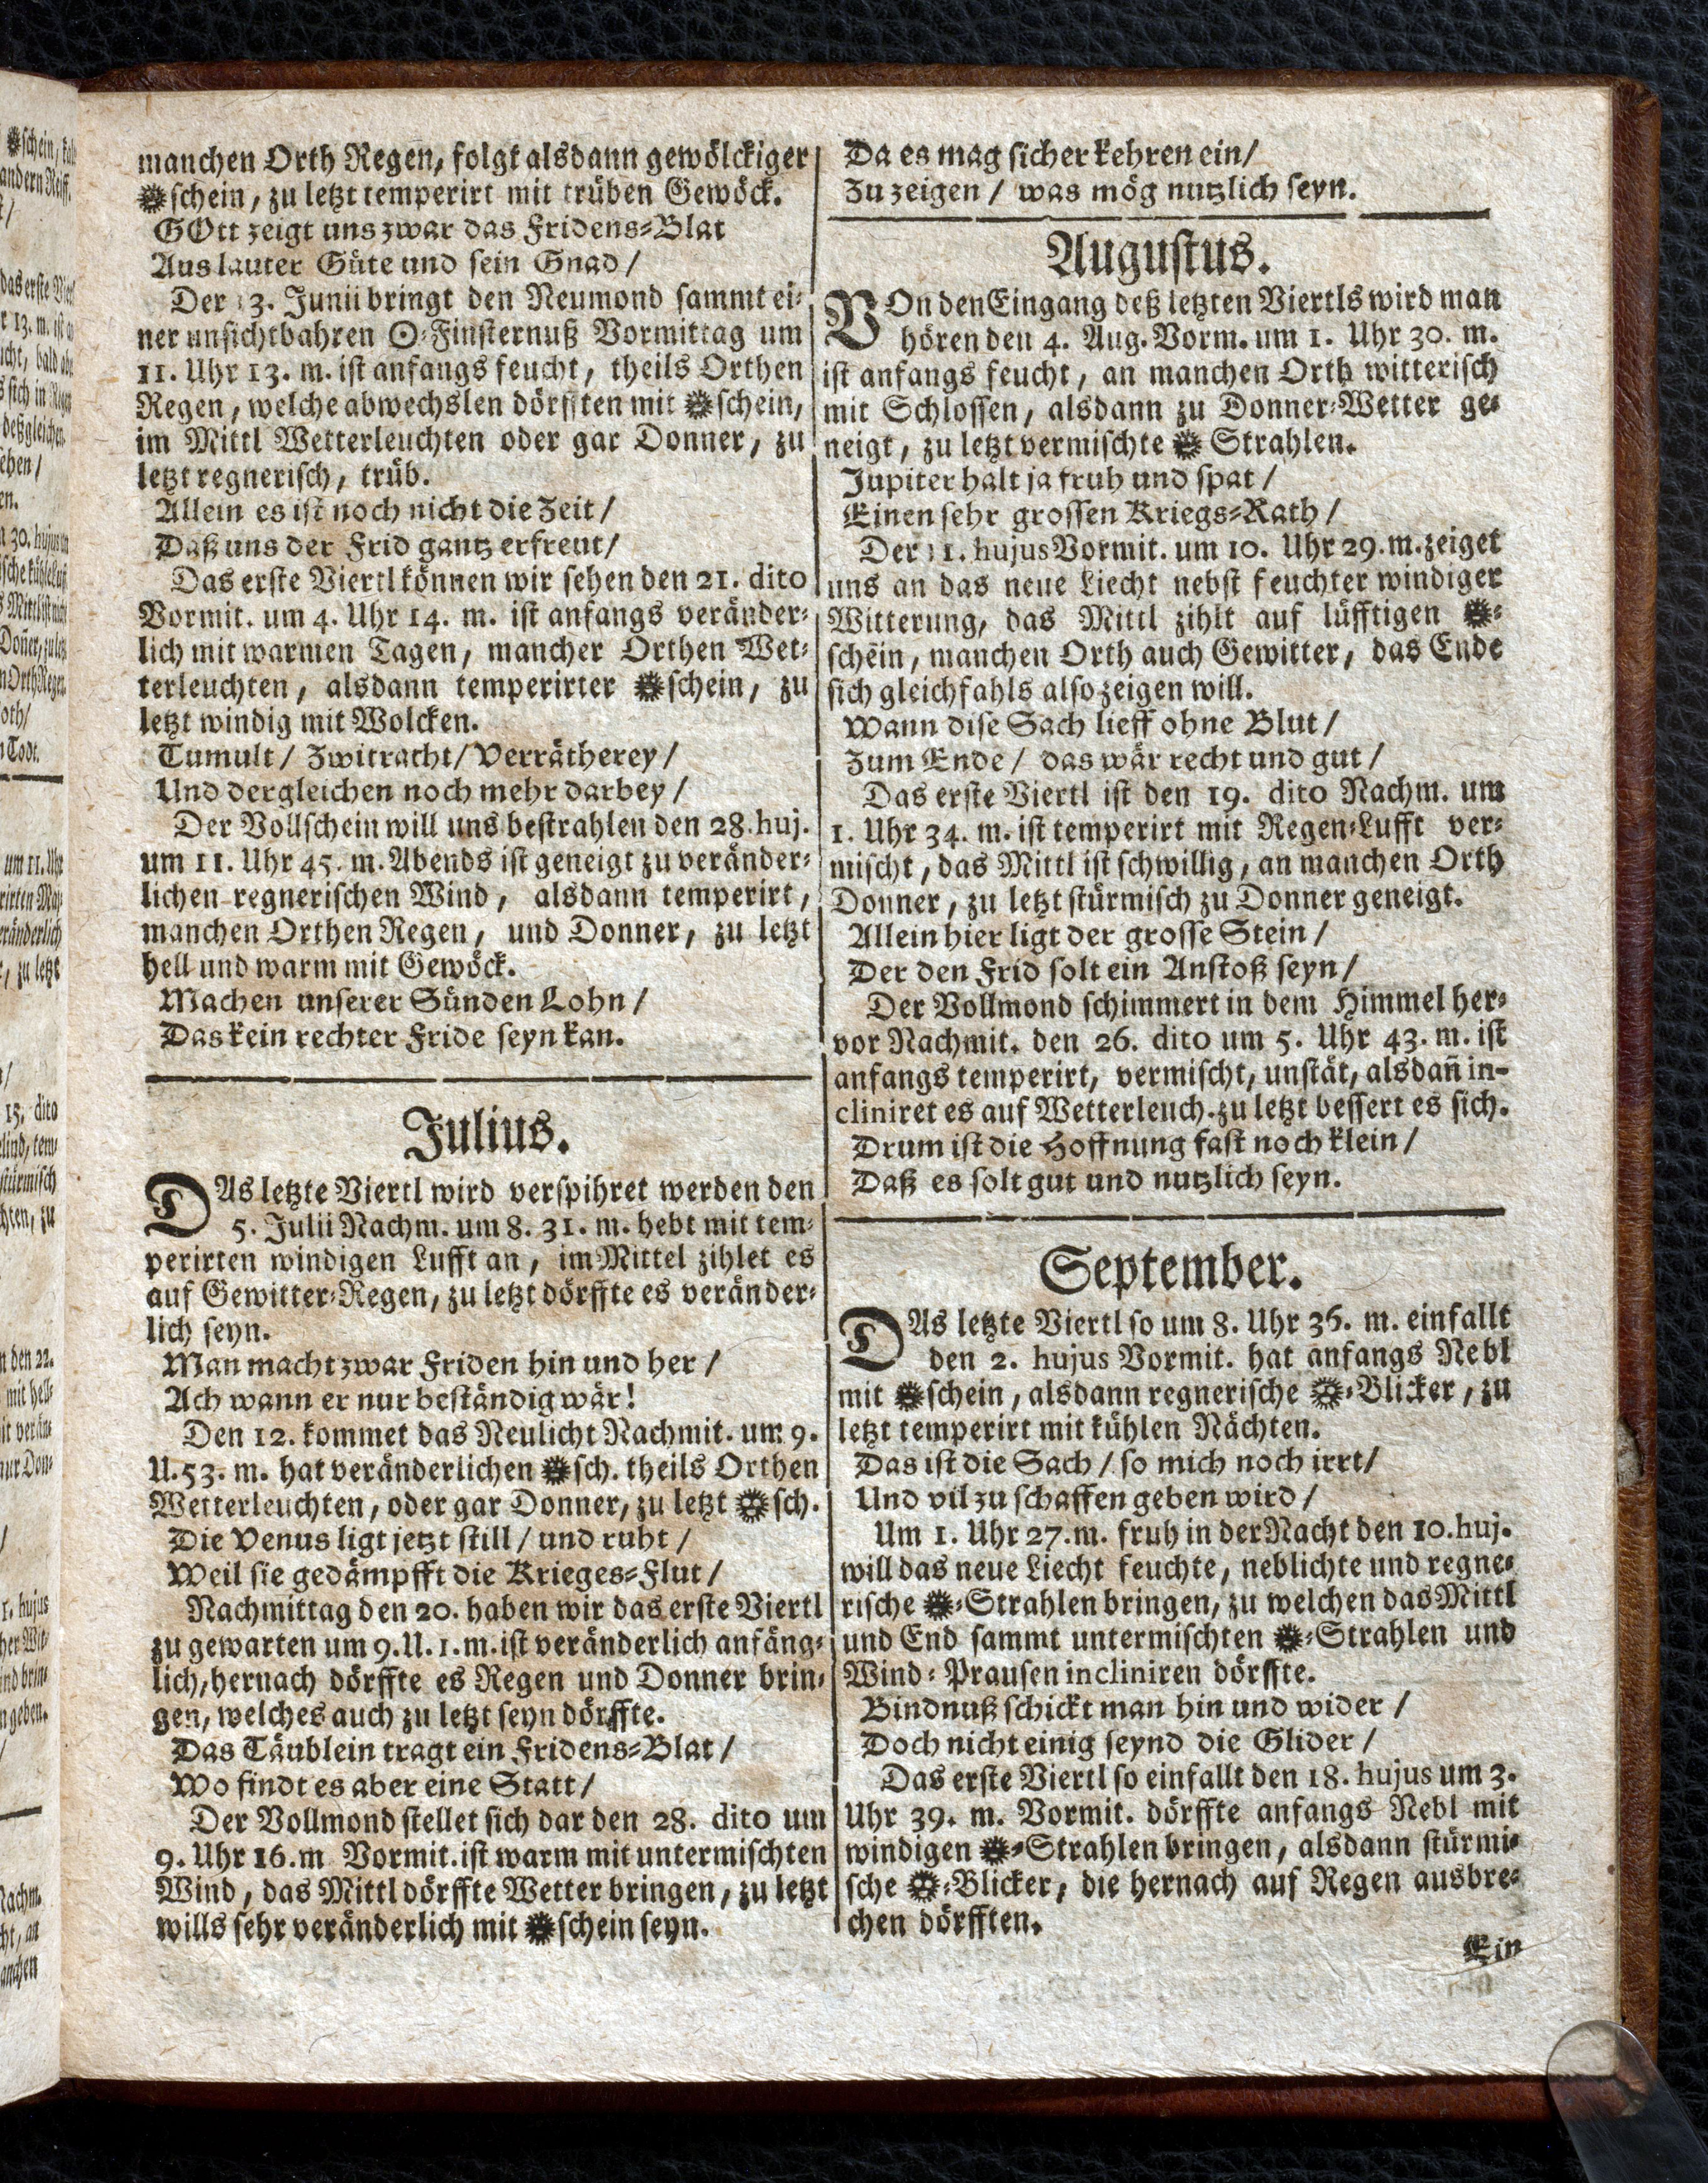 manchen Orth Regen, folgt alsdann gewölckiger
☼schein, zu letzt temperirt mit trüben Gewöck.
GOtt zeigt uns zwar das Fridens-Blat
Aus lauter Güte und sein Gnad /
Der 13. Junii bringt den Neumond sammt ei-
ner unsichtbahren ☉-Finsternuß Vormittag um
11. Uhr 13. m. ist anfangs feucht, theils Orthen
Regen, welche abwechslen dörfften mit ☼schein,
im Mittl Wetterleuchten oder gar Donner, zu
letzt regnerisch, trüb.
Allein es ist noch nicht die Zeit /
Daß uns der Frid gantz erfreut /
Das erste Viertl können wir sehen den 21. dito
Vormit. um 4. Uhr 14. m. ist anfangs veränder-
lich mit warmen Tagen, mancher Orthen Wet-
terleuchten, alsdann temperirter ☼schein, zu
letzt windig mit Wolcken.
Tumult / Zwitracht / Verrätherey /
Und dergleichen noch mehr darbey /
Der Vollschein will uns bestrahlen den 28. huj.
um 11. Uhr 45. m. Abends ist geneigt zu veränder-
lichen regnerischen Wind, alsdann temperirt,
manchen Orthen Regen, und Donner, zu letzt
hell und warm mit Gewöck.
Machen unserer Sünden Lohn /
Das kein rechter Fride seyn kan.
Julius.
DAs letzte Viertl wird verspihret werden den
5. Julii Nachm. um 8. 31. m. hebt mit tem-
perirten windigen Lufft an, im Mittel zihlet es
auf Gewitter-Regen, zu letzt dörffte es veränder-
lich seyn.
Man macht zwar Friden hin und her /
Ach wann er nur beständig wär!
Den 12. kommet das Neulicht Nachmit. um 9.
U. 53. m. hat veränderlichen ☼sch. theils Orthen
Wetterleuchten, oder gar Donner, zu letzt ☼sch.
Die Venus ligt jetzt still / und ruht /
Weil sie gedämpfft die Krieges-Flut /
Nachmittag den 20. haben wir das erste Viertl
zu gewarten um 9. U. 1. m. ist veränderlich anfäng-
lich, hernach dörffte es Regen und Donner brin-
gen, welches auch zu letzt seyn dörffte.
Das Täublein tragt ein Fridens-Blat /
Wo findt es aber eine Statt /
Der Vollmond stellet sich dar den 28. dito um
9. Uhr 16. m Vormit. ist warm mit untermischten
Wind, das Mittl dörffte Wetter bringen, zu letzt
wills sehr veränderlich mit ☼schein seyn.
Da es mag sicher kehren ein /
Zu zeigen / was mög nutzlich seyn.
Augustus.
VOn den Eingang deß letzten Viertls wird man
hören den 4. Aug. Vorm. um 1. Uhr 30. m.
ist anfangs feucht, an manchen Orth witterisch
mit Schlossen, alsdann zu Donner-Wetter ge-
neigt, zu letzt vermischte ☼ Strahlen.
Jupiter halt ja fruh und spat /
Einen sehr grossen Kriegs-Rath /
Der 11. hujus Vormit. um 10. Uhr 29. m. zeiget
uns an das neue Liecht nebst feuchter windiger
Witterung, das Mittl zihlt auf lüfftigen ☼-
schein, manchen Orth auch Gewitter, das Ende
sich gleichfahls also zeigen will.
Wann dise Sach lieff ohne Blut /
Zum Ende / das wär recht und gut /
Das erste Viertl ist den 19. dito Nachm. um
1. Uhr 34. m. ist temperirt mit Regen-Lufft ver-
mischt, das Mittl ist schwillig, an manchen Orth
Donner, zu letzt stürmisch zu Donner geneigt.
Allein hier ligt der grosse Stein /
Der den Frid solt ein Anstoß seyn /
Der Vollmond schimmert in dem Himmel her-
vor Nachmit. den 26. dito um 5. Uhr 43. m. ist
anfangs temperirt, vermischt, unstät, alsdañ in-
cliniret es auf Wetterleuch. zu letzt bessert es sich.
Drum ist die Hoffnung fast noch klein /
Daß es solt gut und nutzlich seyn.
September.
DAs letzte Viertl so um 8. Uhr 36. m. einfallt
den 2. hujus Vormit. hat anfangs Nebl
mit ☼schein, alsdann regnerische ☼-Blicker, zu
letzt temperirt mit kühlen Nächten.
Das ist die Sach / so mich noch irrt /
Und vil zu schaffen geben wird /
Um 1. Uhr 27. m. fruh in der Nacht den 10. huj.
will das neue Liecht feuchte, neblichte und regne-
rische ☼-Strahlen bringen, zu welchen das Mittl
und End sammt untermischten ☼-Strahlen und
Wind-Prausen incliniren dörffte.
Bindnuß schickt man hin und wider /
Doch nicht einig seynd die Glider /
Das erste Viertl so einfallt den 18. hujus um 3.
Uhr 39. m. Vormit. dörffte anfangs Nebl mit
windigen ☼-Strahlen bringen, alsdann stürmi-
sche ☼-Blicker, die hernach auf Regen ausbre-
chen dörfften.
Ein